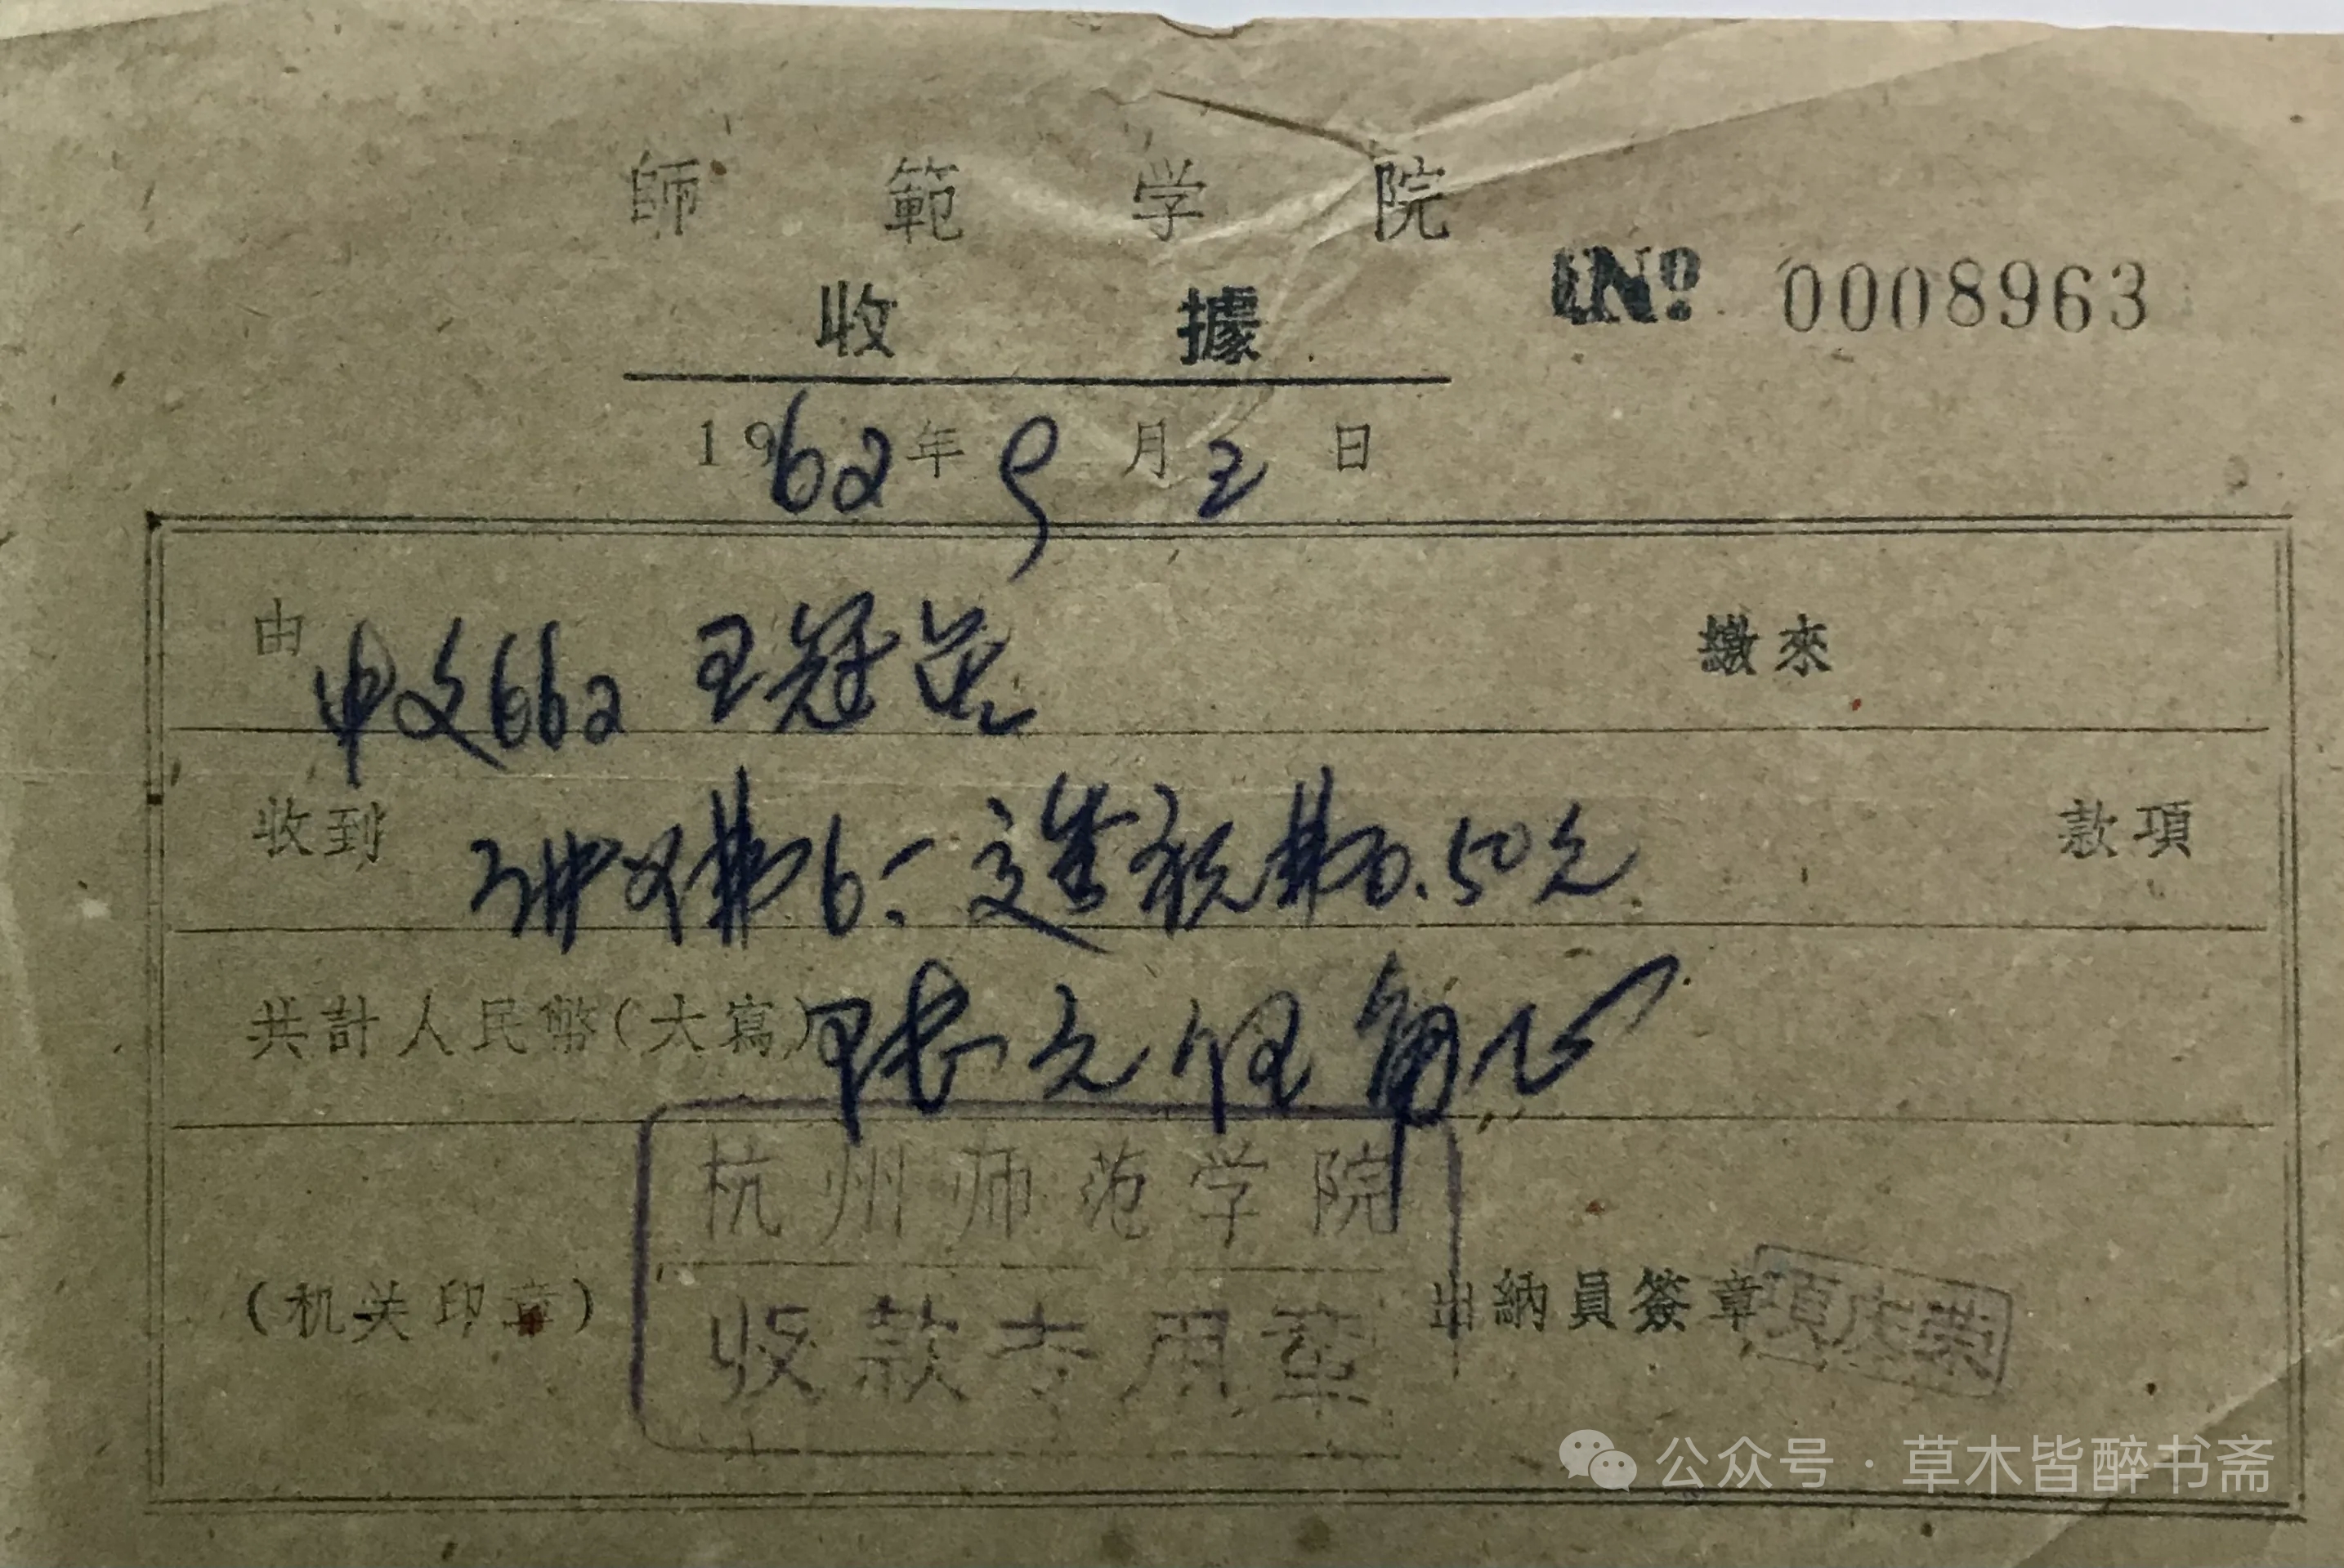 師範学院
收據
№ 0008963
1962年9月2日
由 中文662 王冠 繳來
收到 讲义费6.- 费0.50元 款項
共計人民幣(大寫) 陆元伍角正
杭州师范学院
收款专用章
(机关印章)
出納員簽章
公众号·草木皆醉书斋